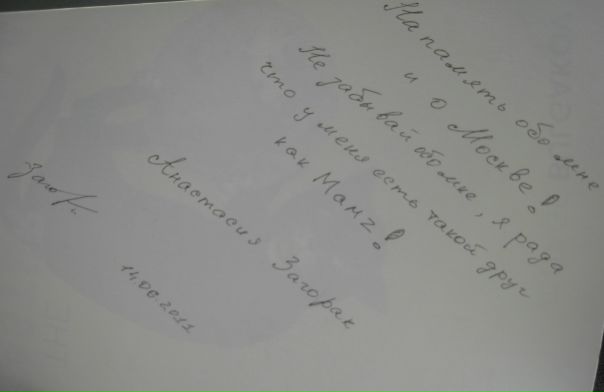 На память обо мне
и о Москве!
Не забывай обо мне, я рада
что у меня есть такой друг
как Мамг!
Анастасия Загорак
14.06.2011